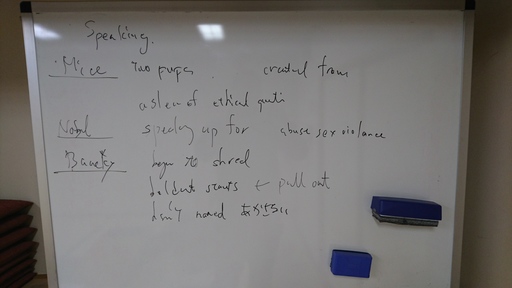 Speaking.
Mice two pups. created from
a slew of ethical questi
Nobel speaking up for abuse sex violance
Banksy began to shred
pull out
named あかさたい